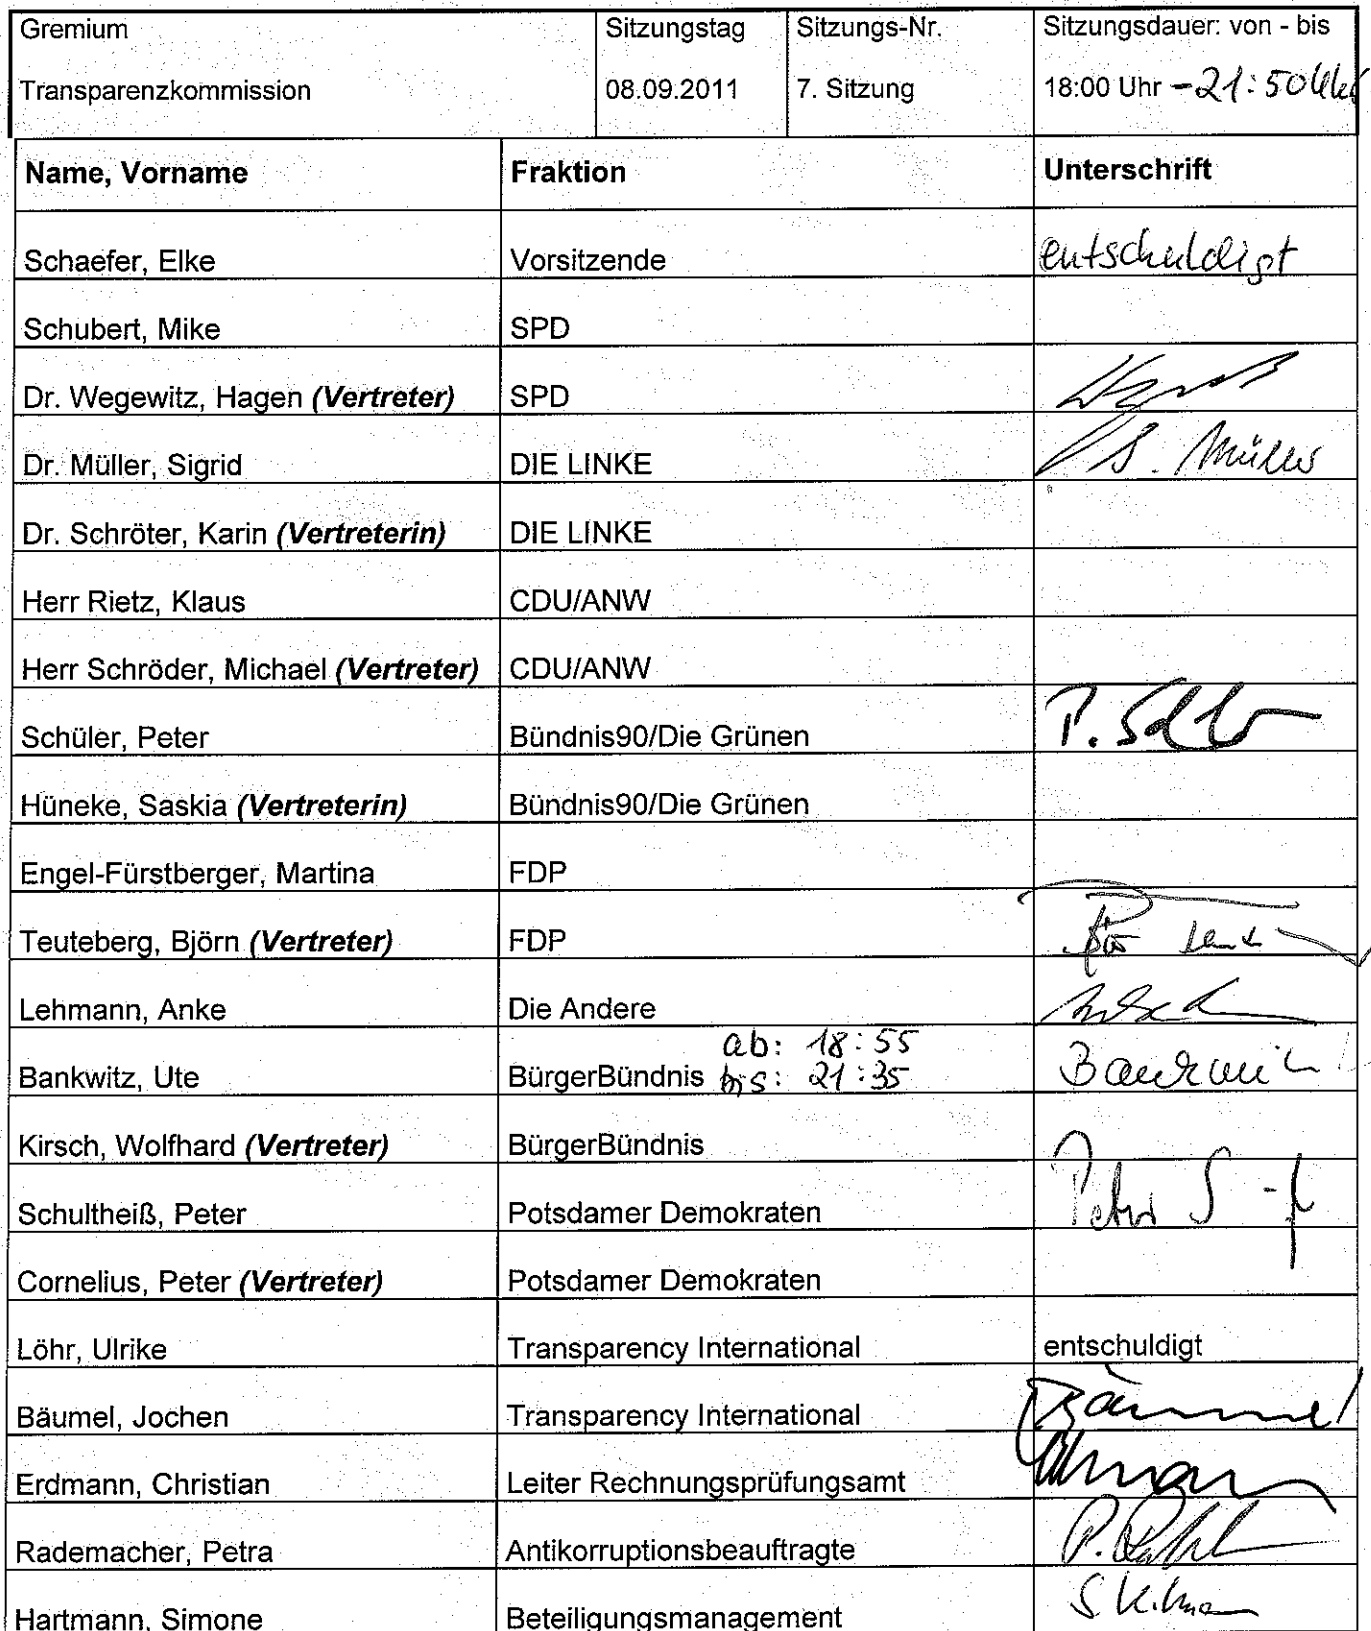 Gremium Sitzungstag Sitzungs-Nr. Sitzungsdauer: von - bis
Transparenzkommission 08.09.2011 7. Sitzung 18:00 Uhr -21:50 Uhr
Name, Vorname Fraktion Unterschrift
Schaefer, Elke Vorsitzende entschuldigt
Schubert, Mike SPD
Dr. Wegewitz, Hagen (Vertreter) SPD
Dr. Müller, Sigrid DIE LINKE S. Müller
Dr. Schröter, Karin (Vertreterin) DIE LINKE
Herr Rietz, Klaus CDU/ANW
Herr Schröder, Michael (Vertreter) CDU/ANW
Schüler, Peter Bündnis90/Die Grünen P.
Hüneke, Saskia (Vertreterin) Bündnis90/Die Grünen
Engel-Fürstberger, Martina FDP
Teuteberg, Björn (Vertreter) FDP
Lehmann, Anke Die Andere
ab: 18:55
Bankwitz, Ute BürgerBündnis bis: 21:35
Kirsch, Wolfhard (Vertreter) BürgerBündnis
Schultheiß, Peter Potsdamer Demokraten Peter
Cornelius, Peter (Vertreter) Potsdamer Demokraten
Löhr, Ulrike Transparency International entschuldigt
Bäumel, Jochen Transparency International Bäumel
Erdmann, Christian Leiter Rechnungsprüfungsamt
Rademacher, Petra Antikorruptionsbeauftragte P.
Hartmann, Simone Beteiligungsmanagement